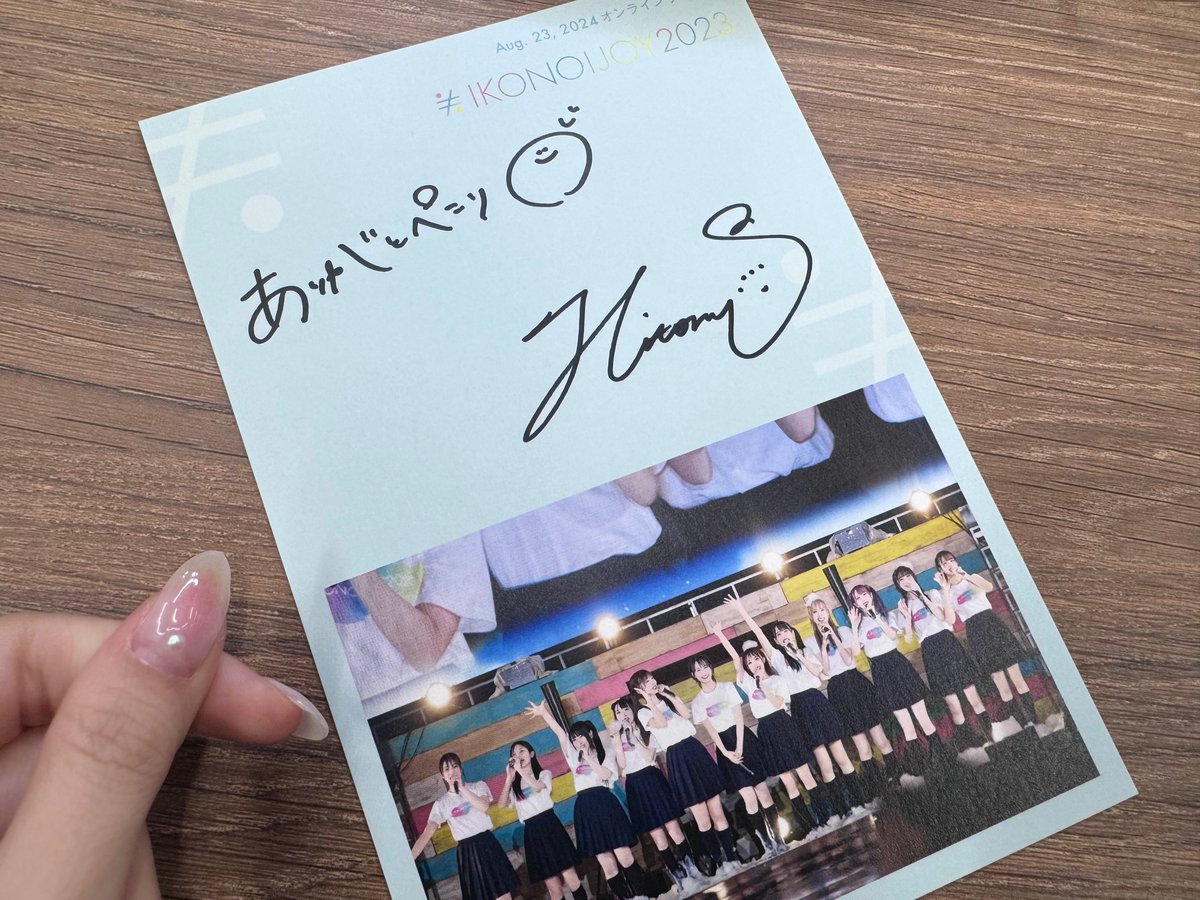 Aug. 23, 2024オンライン
#IKONOIJOY2023
あけじとぺこり
Hitomi S